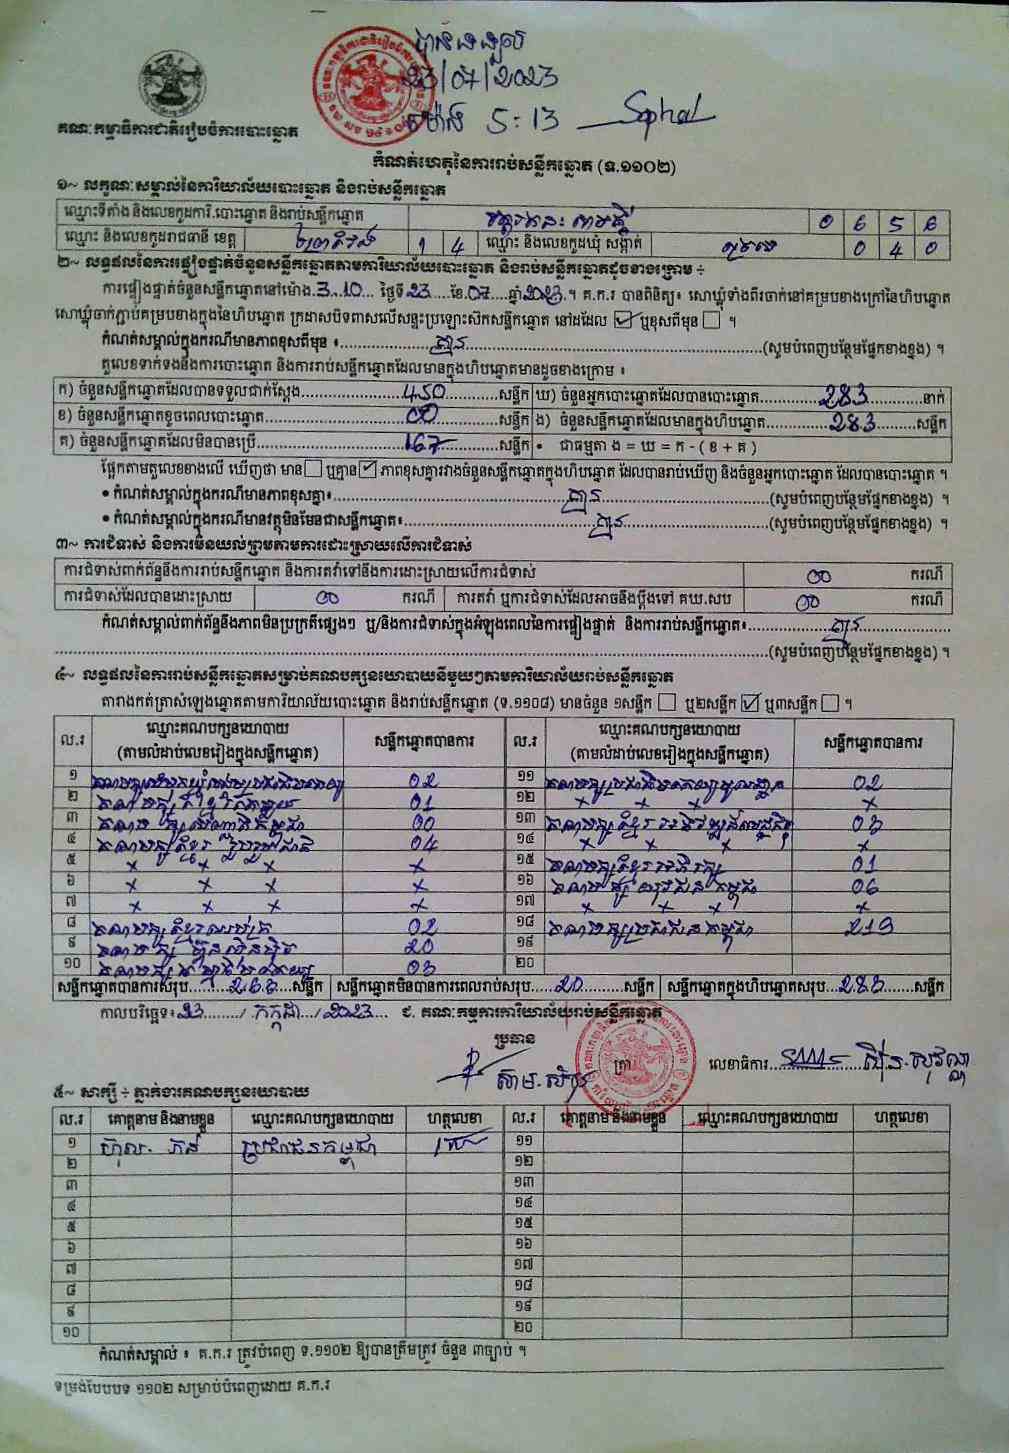 បានទទួល
23/07/2023
ម៉ោង 5:13 Sophal
គណៈកម្មាធិការជាតិរៀបចំការបោះឆ្នោត
កំណត់ហេតុនៃការរាប់សន្លឹកឆ្នោត (ទ.១១០២)
១~ លក្ខណៈសម្គាល់នៃការិយាល័យបោះឆ្នោត និងរាប់សន្លឹកឆ្នោត
ឈ្មោះទីតាំង និងលេខកូដការិ.បោះឆ្នោត និងរាប់សន្លឹកឆ្នោត 0 6 5 6
ឈ្មោះ និងលេខកូដរាជធានី ខេត្ត ព្រៃវែង 1 4 ឈ្មោះ និងលេខកូដឃុំ សង្កាត់ 0 4 0
២~ លទ្ធផលនៃការផ្ទៀងផ្ទាត់ចំនួនសន្លឹកឆ្នោតតាមការិយាល័យបោះឆ្នោត និងរាប់សន្លឹកឆ្នោតដូចខាងក្រោម ÷
ការផ្ទៀងផ្ទាត់ចំនួនសន្លឹកឆ្នោតនៅម៉ោង 3:10 ថ្ងៃទី 23 ខែ 07 ឆ្នាំ 2023 ។ គ.ក.រ បានពិនិត្យ៖ សោឃ្លុំទាំងពីរចាក់នៅគម្របខាងក្រៅនៃហិបឆ្នោត
សោឃ្លុំចាក់ភ្ជាប់គម្របខាងក្នុងនៃហិបឆ្នោត ក្រដាសបិទពាសលើសន្ទះប្រឡោះស៊កសន្លឹកឆ្នោត នៅដដែល ☑ ឬខុសពីមុន ☐ ។
កំណត់សម្គាល់ក្នុងករណីមានភាពខុសពីមុន ៖ គ្មាន (សូមបំពេញបន្ថែមផ្នែកខាងខ្នង) ។
តួលេខទាក់ទងនឹងការបោះឆ្នោត និងការរាប់សន្លឹកឆ្នោតដែលមានក្នុងហិបឆ្នោតមានដូចខាងក្រោម ៖
ក) ចំនួនសន្លឹកឆ្នោតដែលបានទទួលជាក់ស្តែង 450 សន្លឹក ឃ) ចំនួនអ្នកបោះឆ្នោតដែលបានបោះឆ្នោត 283 នាក់
ខ) ចំនួនសន្លឹកឆ្នោតខូចពេលបោះឆ្នោត 00 សន្លឹក ង) ចំនួនសន្លឹកឆ្នោតដែលមានក្នុងហិបឆ្នោត 283 សន្លឹក
គ) ចំនួនសន្លឹកឆ្នោតដែលមិនបានប្រើ 167 សន្លឹក • ជាធម្មតា ង = ឃ = ក - ( ខ + គ )
ផ្អែកតាមតួលេខខាងលើ ឃើញថា មាន ☐ ឬគ្មាន ☑ ភាពខុសគ្នារវាងចំនួនសន្លឹកឆ្នោតក្នុងហិបឆ្នោត ដែលបានរាប់ឃើញ និងចំនួនអ្នកបោះឆ្នោត ដែលបានបោះឆ្នោត ។
• កំណត់សម្គាល់ក្នុងករណីមានភាពខុសគ្នា៖ គ្មាន (សូមបំពេញបន្ថែមផ្នែកខាងខ្នង) ។
• កំណត់សម្គាល់ក្នុងករណីមានវត្ថុមិនមែនជាសន្លឹកឆ្នោត៖ គ្មាន (សូមបំពេញបន្ថែមផ្នែកខាងខ្នង) ។
៣~ ការជំទាស់ និងការមិនយល់ព្រមតាមការដោះស្រាយលើការជំទាស់
ការជំទាស់ពាក់ព័ន្ធនឹងការរាប់សន្លឹកឆ្នោត និងការតវ៉ាទៅនឹងការដោះស្រាយលើការជំទាស់ 00 ករណី
ការជំទាស់ដែលបានដោះស្រាយ 00 ករណី ការតវ៉ា ឬការជំទាស់ដែលអាចនឹងប្តឹងទៅ គឃ.សប 00 ករណី
កំណត់សម្គាល់ពាក់ព័ន្ធនឹងភាពមិនប្រក្រតីផ្សេងៗ ឬ/និងការជំទាស់ក្នុងអំឡុងពេលនៃការផ្ទៀងផ្ទាត់ និងការរាប់សន្លឹកឆ្នោត៖ គ្មាន
(សូមបំពេញបន្ថែមផ្នែកខាងខ្នង) ។
៤~ លទ្ធផលនៃការរាប់សន្លឹកឆ្នោតសម្រាប់គណបក្សនយោបាយនីមួយៗតាមការិយាល័យរាប់សន្លឹកឆ្នោត
តារាងកត់ត្រាសំឡេងឆ្នោតតាមការិយាល័យបោះឆ្នោត និងរាប់សន្លឹកឆ្នោត (ទ.១១០៨) មានចំនួន ១សន្លឹក ☐ ឬ២សន្លឹក ☑ ឬ៣សន្លឹក ☐ ។
ល.រ ឈ្មោះគណបក្សនយោបាយ (តាមលំដាប់លេខរៀងក្នុងសន្លឹកឆ្នោត) សន្លឹកឆ្នោតបានការ ល.រ ឈ្មោះគណបក្សនយោបាយ (តាមលំដាប់លេខរៀងក្នុងសន្លឹកឆ្នោត) សន្លឹកឆ្នោតបានការ
១ 02 ១១ 02
២ 01 ១២ x x x x
៣ 00 ១៣ 03
៤ 04 ១៤ x x x x
៥ x x x x ១៥ 01
៦ x x x x ១៦ 06
៧ x x x x ១៧ x x x x
៨ 02 ១៨ គណបក្សប្រជាជនកម្ពុជា 219
៩ គណបក្ស ហ៊្វុនស៊ិនប៉ិច 20 ១៩
១០ 03 ២០
សន្លឹកឆ្នោតបានការសរុប 263 សន្លឹក សន្លឹកឆ្នោតមិនបានការពេលរាប់សរុប 20 សន្លឹក សន្លឹកឆ្នោតក្នុងហិបឆ្នោតសរុប 283 សន្លឹក
កាលបរិច្ឆេទ៖ 23 / កក្កដា / 2023 ជ. គណៈកម្មការការិយាល័យរាប់សន្លឹកឆ្នោត
ប្រធាន ត្រា លេខាធិការ
៥~ សាក្សី ÷ ភ្នាក់ងារគណបក្សនយោបាយ
ល.រ គោត្តនាម និងនាមខ្លួន ឈ្មោះគណបក្សនយោបាយ ហត្ថលេខា ល.រ គោត្តនាម និងនាមខ្លួន ឈ្មោះគណបក្សនយោបាយ ហត្ថលេខា
១ ប្រជាជនកម្ពុជា ១១
២ ១២
៣ ១៣
៤ ១៤
៥ ១៥
៦ ១៦
៧ ១៧
៨ ១៨
៩ ១៩
១០ ២០
កំណត់សម្គាល់ ៖ គ.ក.រ ត្រូវបំពេញ ទ.១១០២ ឱ្យបានត្រឹមត្រូវ ចំនួន ៣ច្បាប់ ។
ទម្រង់បែបបទ ១១០២ សម្រាប់បំពេញដោយ គ.ក.រ